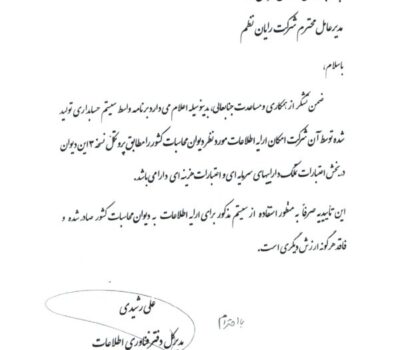 مدیرعامل محترم شرکت رایان نظم
باسلام،
ضمن تشکر از همکاری و مساعدت جنابعالی، بدینوسیله اعلام می دارد برنامه واسط سیستم حسابداری تولید
شده توسط آن شرکت امکان ارایه اطلاعات مورد نظر دیوان محاسبات کشور را مطابق پروتکل نسخه ۳ این دیوان
در بخش اعتبارات تملک داراییهای سرمایه ای و اعتبارات هزینه ای دارا می باشد.
این تاییدیه صرفاً به منظور استفاده از سیستم مذکور برای ارایه اطلاعات به دیوان محاسبات کشور صادر شده و
فاقد هرگونه ارزش دیگری است.
با احترام
علی رشیدی
مدیرکل دفتر فناوری اطلاعات